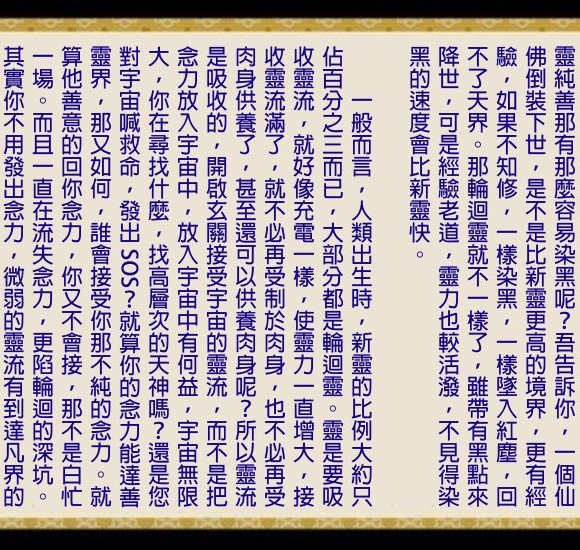 靈純善那有那麼容易染黑呢？吾告訴你，一個仙
佛倒裝下世，是不是比新靈更高的境界，更有經
驗，如果不知修，一樣染黑，一樣墜入紅塵，回
不了天界。那輪迴靈就不一樣了，雖帶有黑點來
降世，可是經驗老道，靈力也較活潑，不見得染
黑的速度會比新靈快。
一般而言，人類出生時，新靈的比例大約只
佔百分之三而已，大部分都是輪迴靈。靈是要吸
收靈流，就好像充電一樣，使靈力一直增大，接
收靈流滿了，就不必再受制於肉身，也不必再受
肉身供養了，甚至還可以供養肉身呢？所以靈流
是吸收的，開啟玄關接受宇宙的靈流，而不是把
念力放入宇宙中，放入宇宙中有何益，宇宙無限
大，你在尋找什麼，找高層次的天神嗎？還是您
對宇宙喊救命，發出SOS？就算你的念力能達善
靈界，那又如何，誰會接受你那不純的念力。就
算他善意的回你念力，你又不會接，那不是白忙
一場。而且一直在流失念力，更陷輪迴的深坑。
其實你不用發出念力，微弱的靈流有到達凡界的